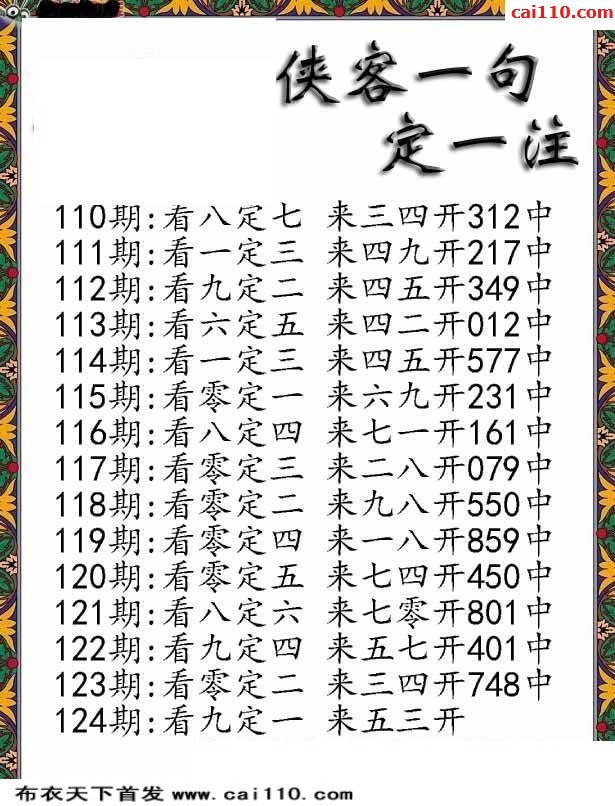 cai110.com
侠客一句
定一注
110期:看八定七 来三四开312中
111期:看一定三 来四九开217中
112期:看九定二 来四五开349中
113期:看六定五 来四二开012中
114期:看一定三 来四五开577中
115期:看零定一 来六九开231中
116期:看八定四 来七一开161中
117期:看零定三 来二八开079中
118期:看零定二 来九八开550中
119期:看零定四 来一八开859中
120期:看零定五 来七四开450中
121期:看八定六 来七零开801中
122期:看九定四 来五七开401中
123期:看零定二 来三四开748中
124期:看九定一 来五三开
布衣天下首发 www.cai110.com